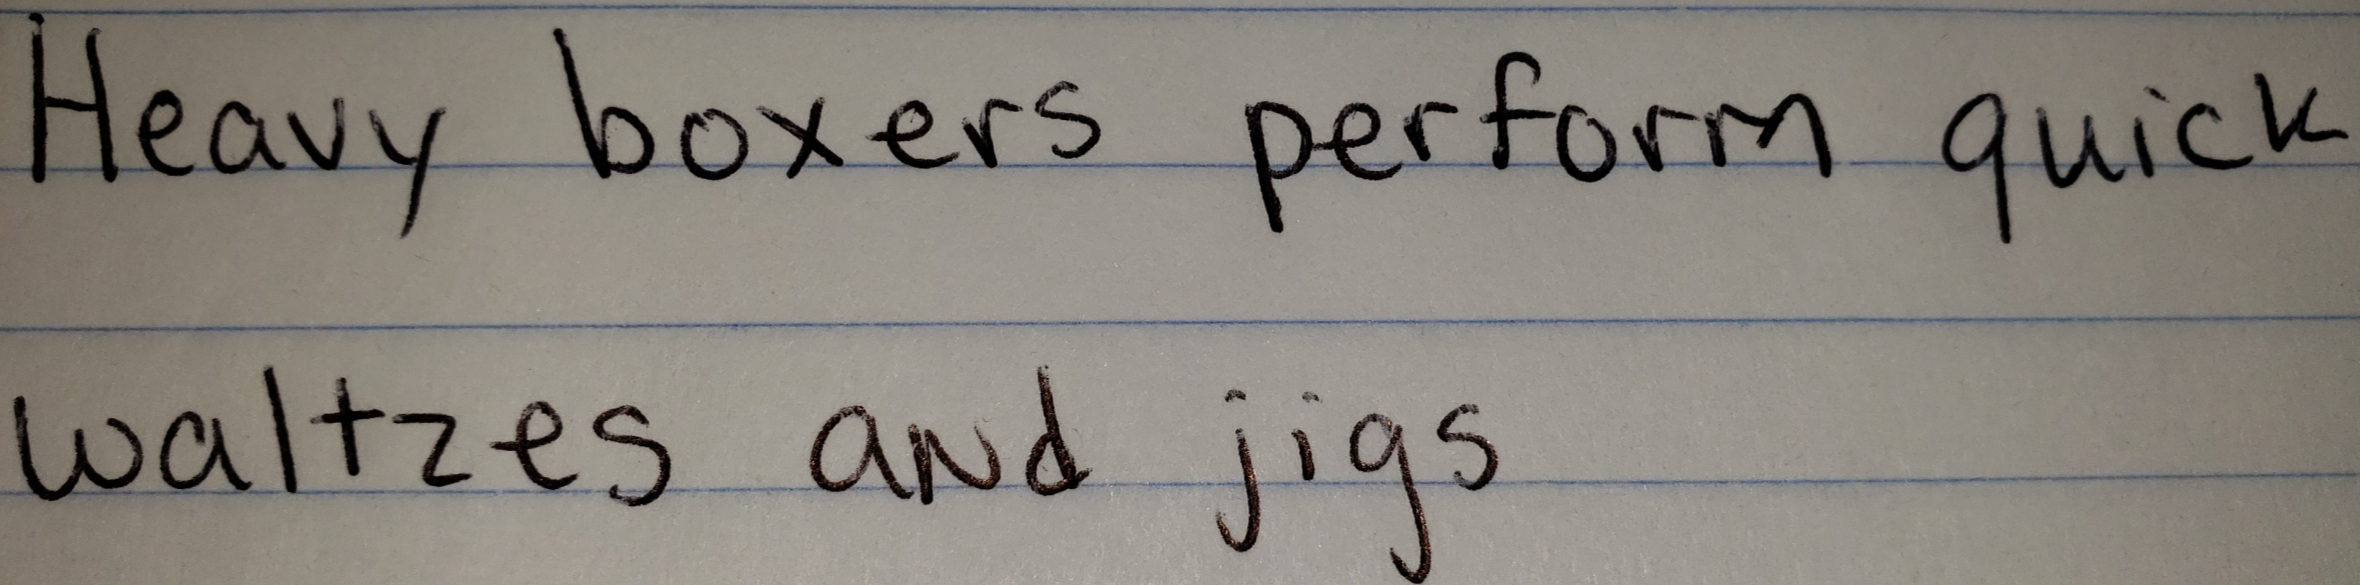 Heavy boxers perform quick
waltzes and jigs